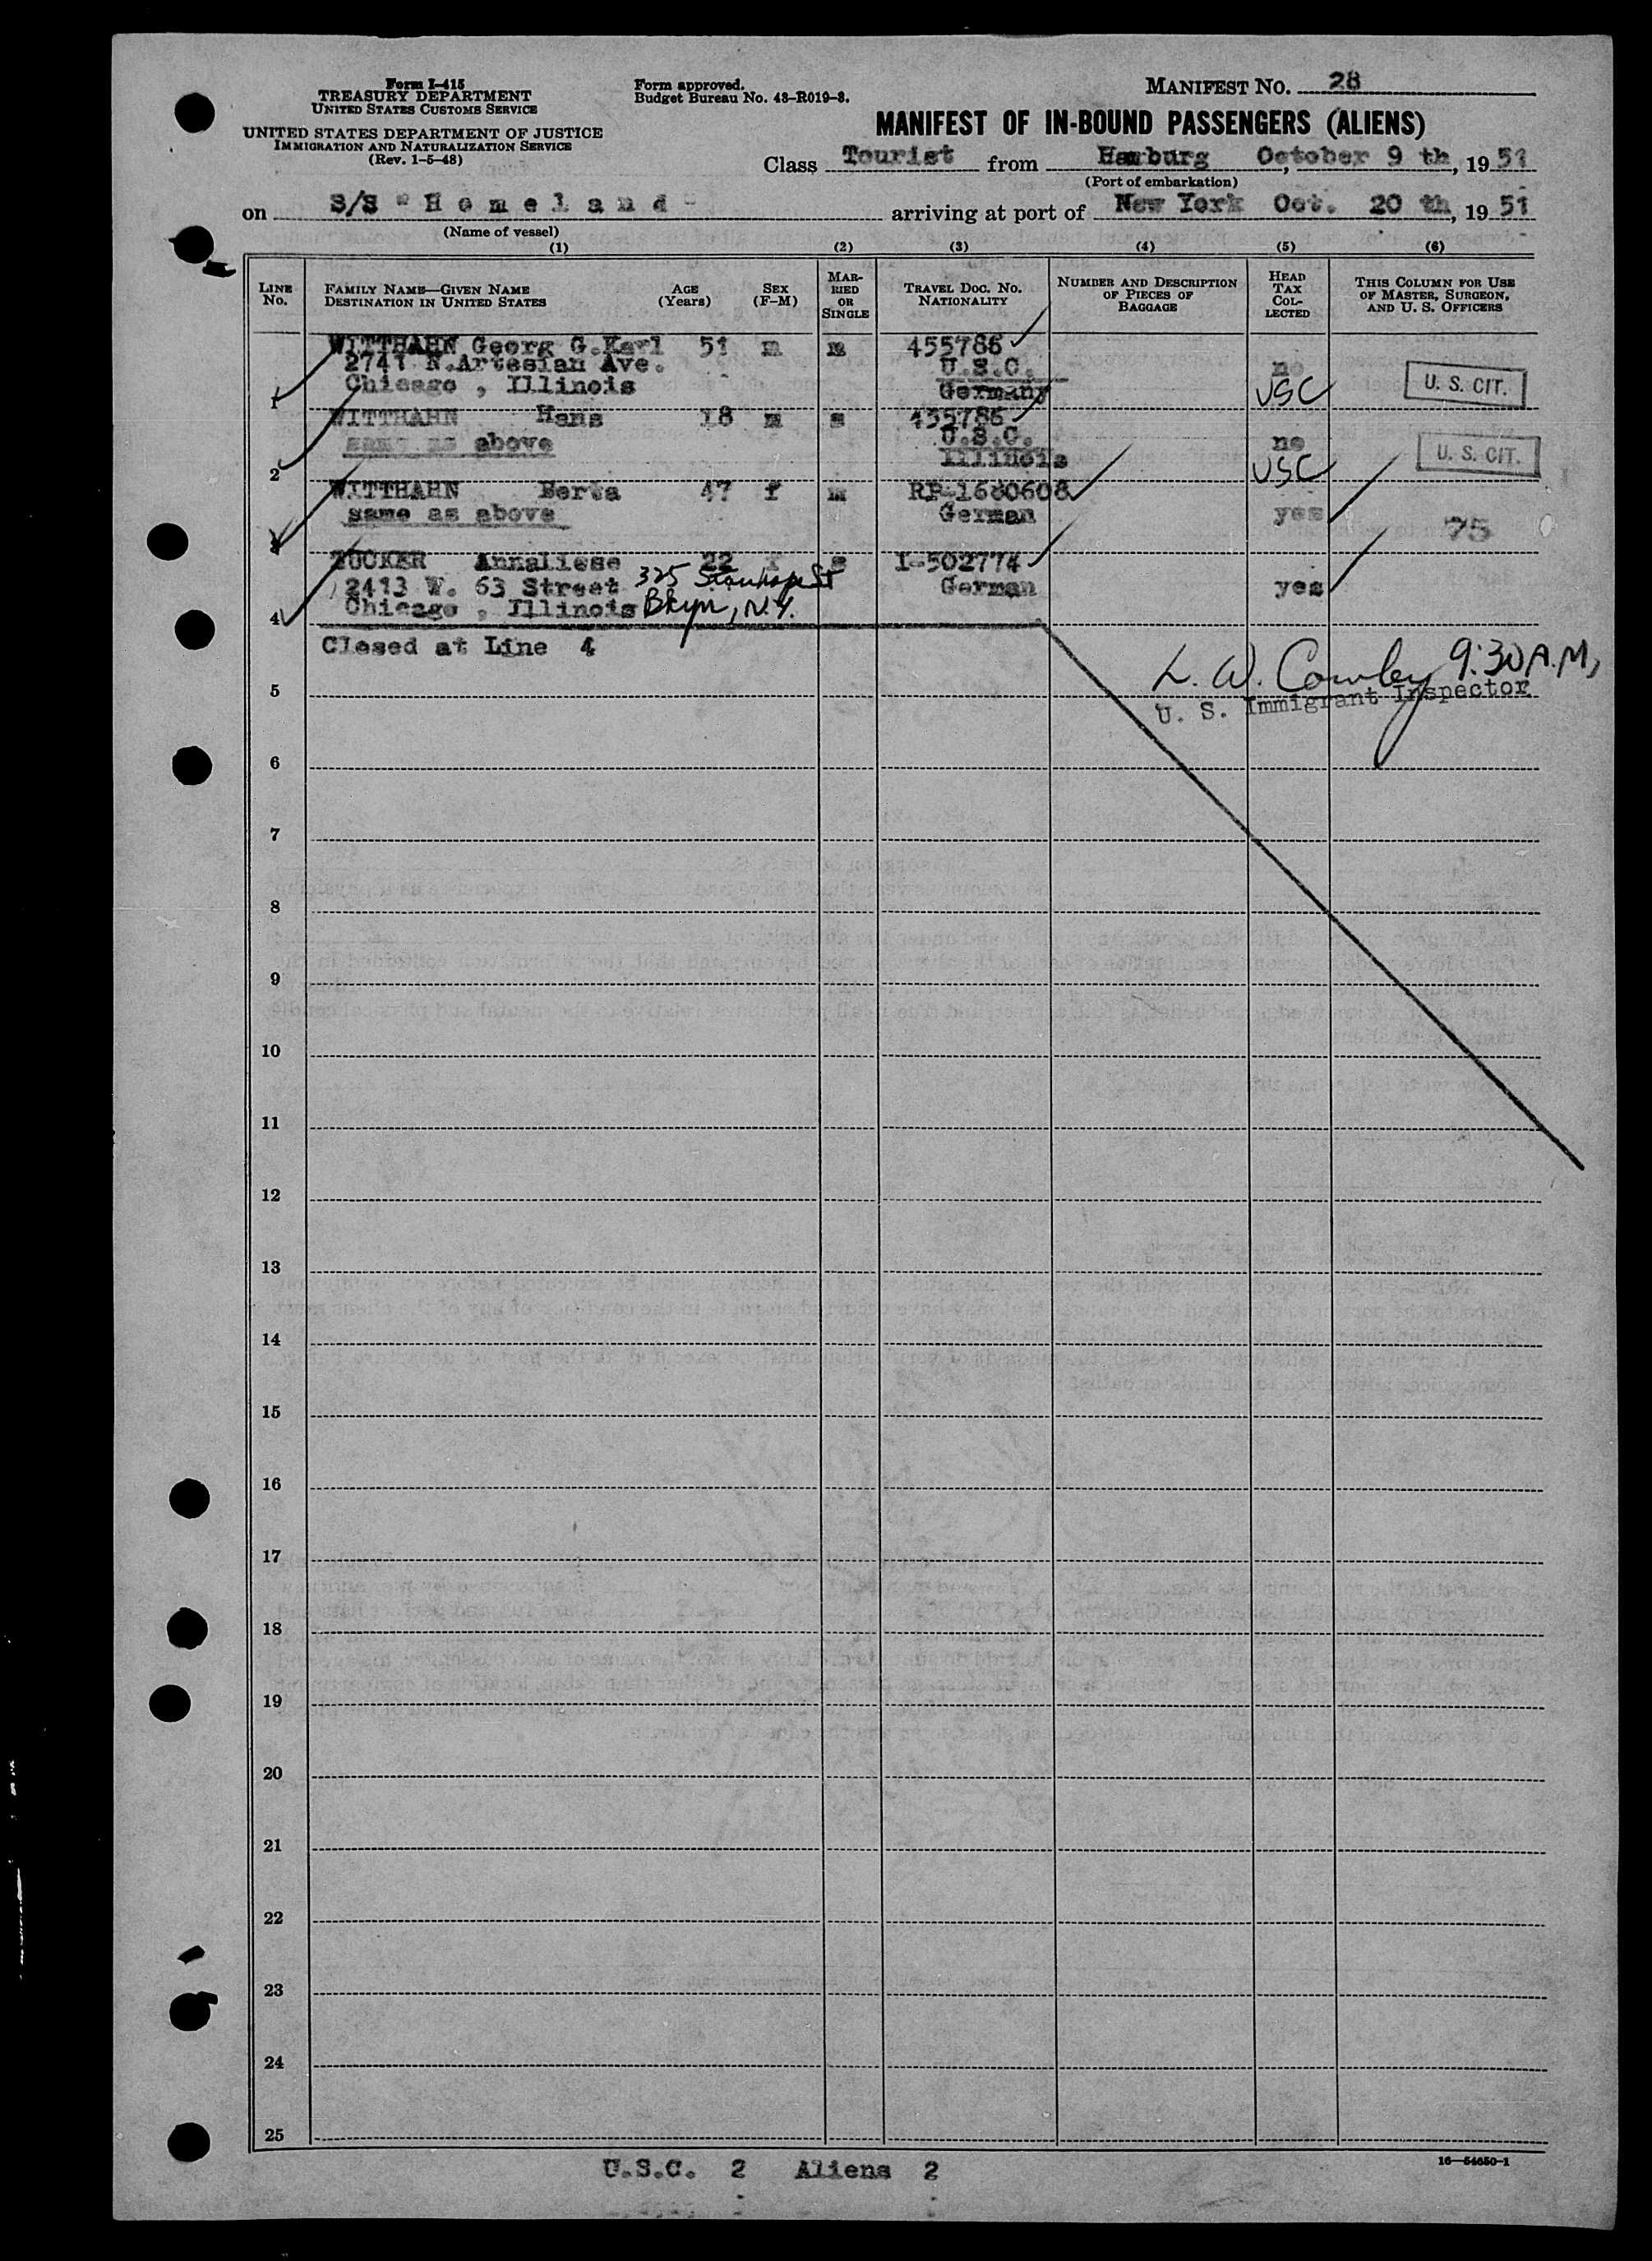 Form I-415
TREASURY DEPARTMENT
UNITED STATES CUSTOMS SERVICE
UNITED STATES DEPARTMENT OF JUSTICE
IMMIGRATION AND NATURALIZATION SERVICE
(Rev. 1-5-48)
Form approved.
Budget Bureau No. 43-R019-3.
MANIFEST NO. 28
MANIFEST OF IN-BOUND PASSENGERS (ALIENS)
Class Tourist from Hamburg October 9 th, 19 51
(Port of embarkation)
on S/S "Homeland" arriving at port of New York Oct. 20 th, 19 51
(Name of vessel)
(1) (2) (3) (4) (5) (6)
LINE NO. FAMILY NAME—GIVEN NAME DESTINATION IN UNITED STATES AGE (Years) SEX (F-M) MARRIED OR SINGLE TRAVEL DOC. NO. NATIONALITY NUMBER AND DESCRIPTION OF PIECES OF BAGGAGE HEAD TAX COLLECTED THIS COLUMN FOR USE OF MASTER, SURGEON, AND U. S. OFFICERS
WITTHAHN Georg G.Karl 51 m m 455786
2741 N.Artesian Ave. U.S.C. no
1 Chicago , Illinois Germany USC U. S. CIT.
WITTHAHN Hans 18 m s 455786
same as above U.S.C. no
2 Illinois USC U. S. CIT.
WITTHAHN Berta 47 f m RP-1680608
same as above German yes 75
3
ZUCKER Annaliese 22 f s I-502774
2413 W. 63 Street 325 Stanhope St German yes
4 Chicago , Illinois Bkyn, N.Y.
Closed at Line 4
L. W. Cowley 9:30 A.M,
5 U. S. Immigrant Inspector
6
7
8
9
10
11
12
13
14
15
16
17
18
19
20
21
22
23
24
25
16—54650-1
U.S.C. 2 Aliens 2